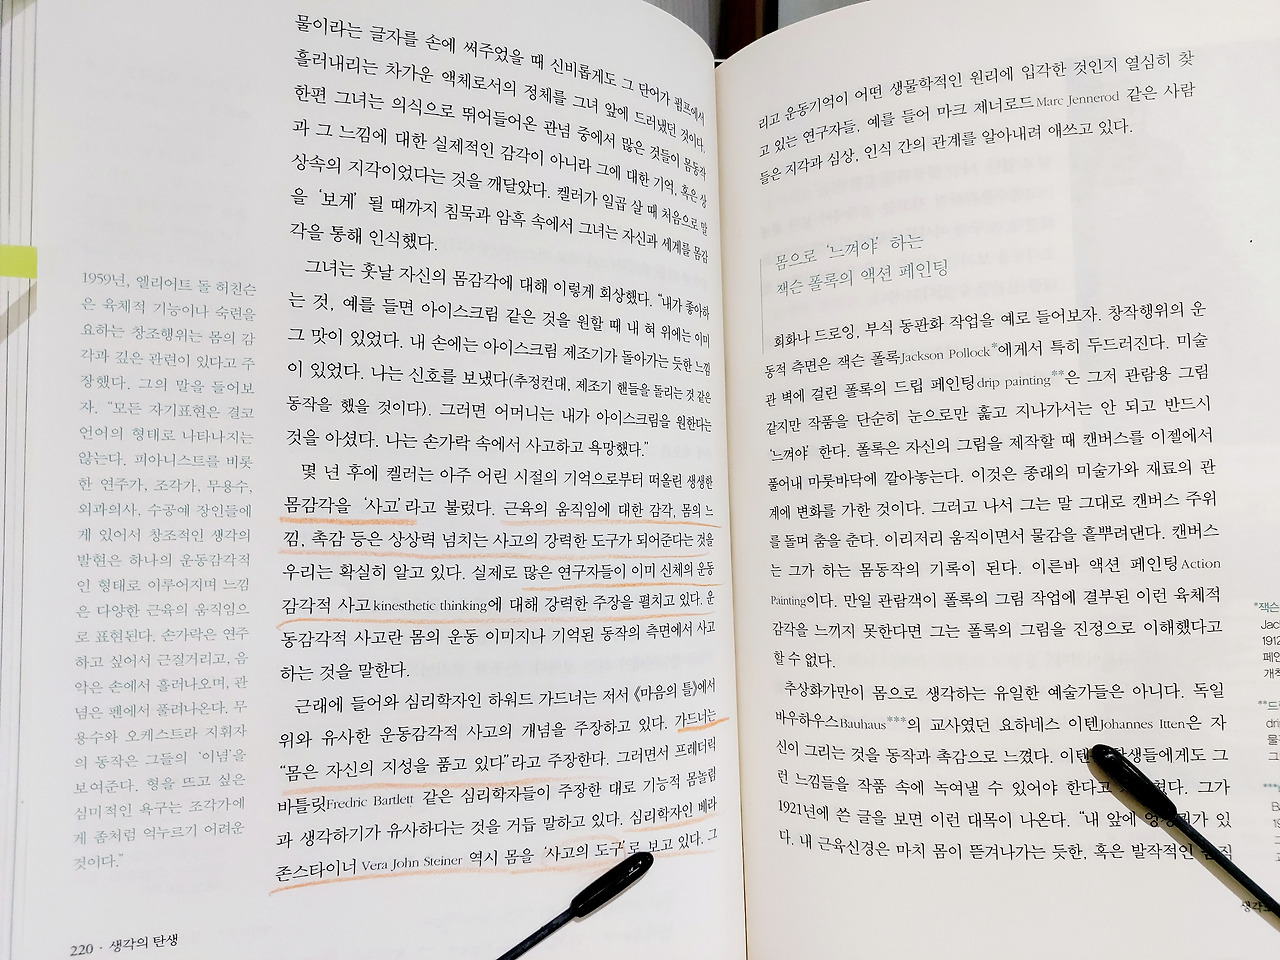 물이라는 글자를 손에 써주었을 때 신비롭게도 그 단어가 펌프에서
흘러내리는 차가운 액체로서의 정체를 그녀 앞에 드러냈던 것이다.
한편 그녀는 의식으로 뛰어들어온 관념 중에서 많은 것들이 몸동작
과 그 느낌에 대한 실제적인 감각이 아니라 그에 대한 기억, 혹은 상
상속의 지각이었다는 것을 깨달았다. 켈러가 일곱 살 때 처음으로 말
을 ‘보게’ 될 때까지 침묵과 암흑 속에서 그녀는 자신과 세계를 몸감
각을 통해 인식했다.
그녀는 훗날 자신의 몸감각에 대해 이렇게 회상했다. “내가 좋아하
는 것, 예를 들면 아이스크림 같은 것을 원할 때 내 혀 위에는 이미
그 맛이 있었다. 내 손에는 아이스크림 제조기가 돌아가는 듯한 느낌
이 있었다. 나는 신호를 보냈다(추정컨대, 제조기 핸들을 돌리는 것 같은
동작을 했을 것이다). 그러면 어머니는 내가 아이스크림을 원한다는
것을 아셨다. 나는 손가락 속에서 사고하고 욕망했다.”
몇 년 후에 켈러는 아주 어린 시절의 기억으로부터 떠올린 생생한
몸감각을 ‘사고’라고 불렀다. 근육의 움직임에 대한 감각, 몸의 느
낌, 촉감 등은 상상력 넘치는 사고의 강력한 도구가 되어준다는 것을
우리는 확실히 알고 있다. 실제로 많은 연구자들이 이미 신체의 운동
감각적 사고kinesthetic thinking에 대해 강력한 주장을 펼치고 있다. 운
동감각적 사고란 몸의 운동 이미지나 기억된 동작의 측면에서 사고
하는 것을 말한다.
근래에 들어와 심리학자인 하워드 가드너는 저서 《마음의 틀》에서
위와 유사한 운동감각적 사고의 개념을 주장하고 있다. 가드너는
“몸은 자신의 지성을 품고 있다”라고 주장한다. 그러면서 프레더릭
바틀릿Fredric Bartlett 같은 심리학자들이 주장한 대로 기능적 몸놀림
과 생각하기가 유사하다는 것을 거듭 말하고 있다. 심리학자인 베라
존스타이너Vera John Steiner 역시 몸을 ‘사고의 도구’로 보고 있다. 그
1959년, 엘리어트 돌 허친슨
은 육체적 기능이나 숙련을
요하는 창조행위는 몸의 감
각과 깊은 관련이 있다고 주
장했다. 그의 말을 들어보
자. “모든 자기표현은 결코
언어의 형태로 나타나지는
않는다. 피아니스트를 비롯
한 연주가, 조각가, 무용수,
외과의사, 수공예 장인들에
게 있어서 창조적인 생각의
발현은 하나의 운동감각적
인 형태로 이루어지며 느낌
은 다양한 근육의 움직임으
로 표현된다. 손가락은 연주
하고 싶어서 근질거리고, 음
악은 손에서 흘러나오며, 관
념은 펜에서 풀려나온다. 무
용수와 오케스트라 지휘자
의 동작은 그들의 ‘이념’을
보여준다. 형을 뜨고 싶은
심미적인 욕구는 조각가에
게 좀처럼 억누르기 어려운
것이다.”
220 · 생각의 탄생
리고 운동기억이 어떤 생물학적인 원리에 입각한 것인지 열심히 찾
고 있는 연구자들, 예를 들어 마크 제너로드Marc Jennerod 같은 사람
들은 지각과 심상, 인식 간의 관계를 알아내려 애쓰고 있다.
몸으로 ‘느껴야’ 하는
잭슨 폴록의 액션 페인팅
회화나 드로잉, 부식 동판화 작업을 예로 들어보자. 창작행위의 운
동적 측면은 잭슨 폴록Jackson Pollock*에게서 특히 두드러진다. 미술
관 벽에 걸린 폴록의 드립 페인팅drip painting**은 그저 관람용 그림
같지만 작품을 단순히 눈으로만 훑고 지나가서는 안 되고 반드시
‘느껴야’ 한다. 폴록은 자신의 그림을 제작할 때 캔버스를 이젤에서
풀어내 마룻바닥에 깔아놓는다. 이것은 종래의 미술가와 재료의 관
계에 변화를 가한 것이다. 그러고 나서 그는 말 그대로 캔버스 주위
를 돌며 춤을 춘다. 이리저리 움직이면서 물감을 흩뿌려댄다. 캔버스
는 그가 하는 몸동작의 기록이 된다. 이른바 액션 페인팅Action
Painting이다. 만일 관람객이 폴록의 그림 작업에 결부된 이런 육체적
감각을 느끼지 못한다면 그는 폴록의 그림을 진정으로 이해했다고
할 수 없다.
추상화가만이 몸으로 생각하는 유일한 예술가들은 아니다. 독일
바우하우스Bauhaus***의 교사였던 요하네스 이텐Johannes Itten은 자
신이 그리는 것을 동작과 촉감으로 느꼈다. 이텐 학생들에게도 그
런 느낌들을 작품 속에 녹여낼 수 있어야 한다고 그가
1921년에 쓴 글을 보면 이런 대목이 나온다. “내 앞에 엉겅퀴가 있
다. 내 근육신경은 마치 몸이 뜯겨나가는 듯한, 혹은 발작적인
*잭슨
Jac
1912
페인
개척
**드
drip
물
그
***